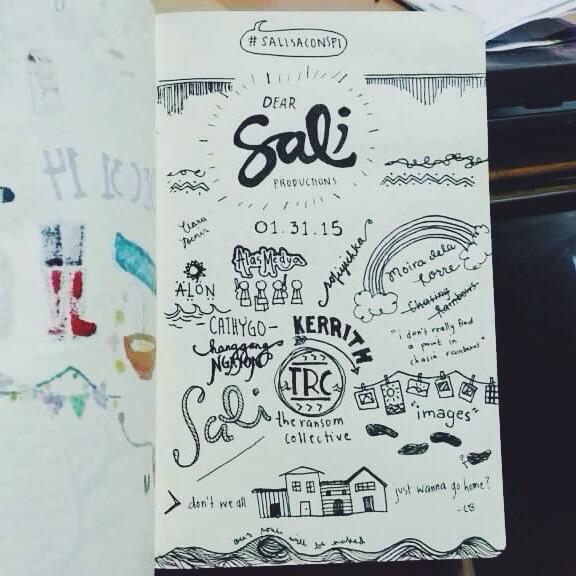 #SALISACONSPI
DEAR
Sali
PRODUCTIONS
01.31.15
Alas Medya
ALON
moira dela
torre
chasing
rainbows
"i don't really find
a point in
chasin rainbows"
CATHYGO
KERRITH
hanggang
NGAYON
TRC
Sali
the ransom
collective
"images"
don't we all
just wanna go home?
-CB
our souls will be naked